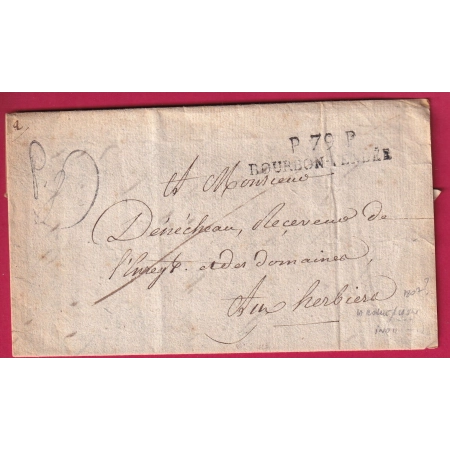 P 79 P
BOURBON-VENDÉE
A Monsieur
Dénécheau, Receveur de
l'Enregt. et des domaines,
Aux herbiers